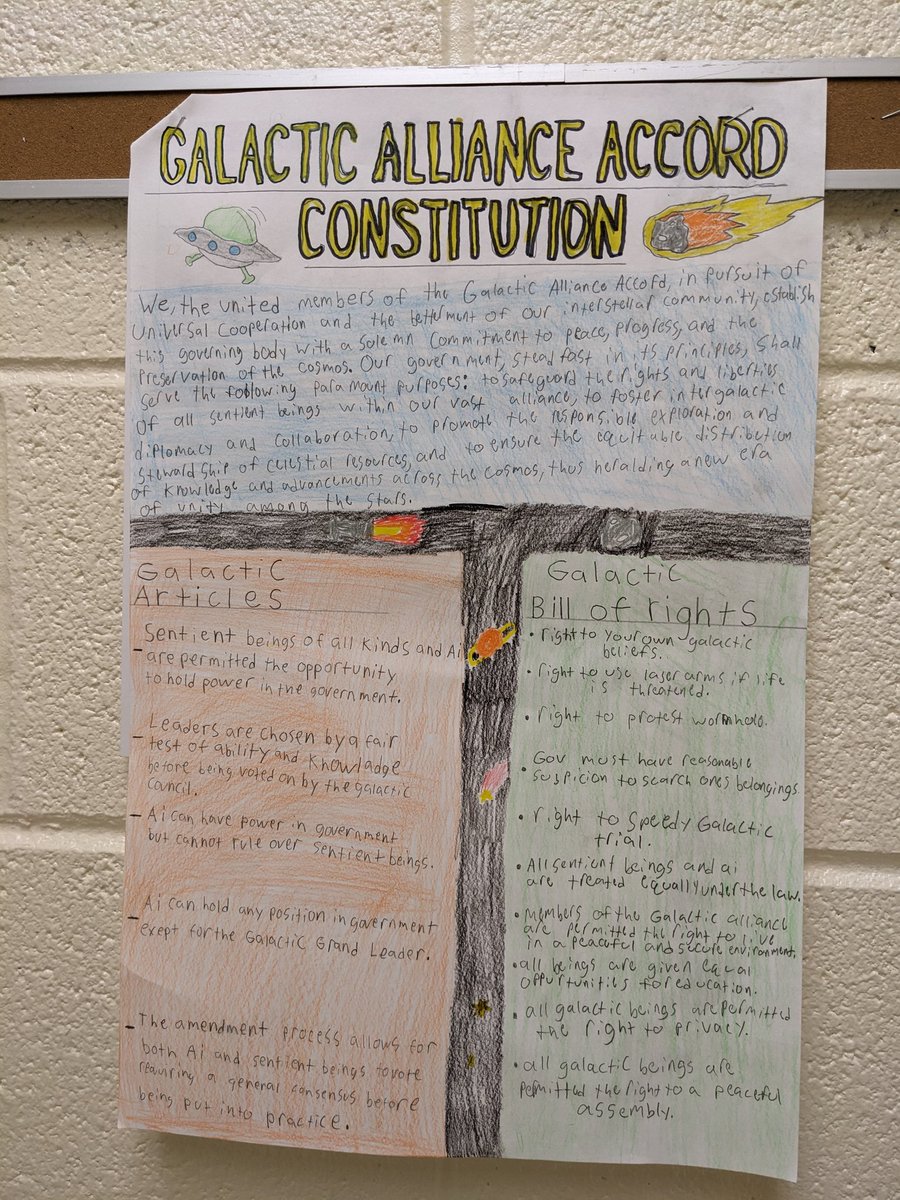 GALACTIC ALLIANCE ACCORD
CONSTITUTION
We, the united members of the Galactic Alliance Accord, in pursuit of
Universal Cooperation and the betterment of our interstellar community, establish
this governing body with a solemn commitment to peace, progress, and the
Preservation of the Cosmos. Our government, steadfast in its principles, shall
serve the following paramount purposes: to safeguard the rights and liberties
of all sentient beings within our vast alliance, to foster intergalactic
diplomacy and collaboration, to promote the responsible exploration and
Stewardship of celestial resources, and to ensure the equitable distribution
of knowledge and advancements across the cosmos, thus heralding a new era
of unity among the stars.
Galactic
Articles
- Sentient beings of all kinds and Ai
are permitted the opportunity
to hold power in the government.
- Leaders are chosen by a fair
test of ability and knowladge
before being voted on by the galactic
council.
- Ai can have power in government
but cannot rule over sentient beings.
- Ai can hold any position in government
exept for the Galactic Grand Leader.
- The amendment process allows for
both Ai and sentient beings to vote
requiring a general consensus before
being put into practice.
Galactic
Bill of rights
• right to your own galactic
beliefs.
• right to use laser arms if life
is threatened.
• right to protest wormhole.
• Gov must have reasonable
suspicion to search ones belongings.
• right to speedy Galactic
trial.
• All sentient beings and ai
are treated equally under the law.
• Members of the Galactic alliance
are permitted the right to live
in a peaceful and secure environment.
• all beings are given equal
oppurtunities for education.
• all galactic beings are permitted
the right to privacy.
• all galactic beings are
permitted the right to a peaceful
assembly.